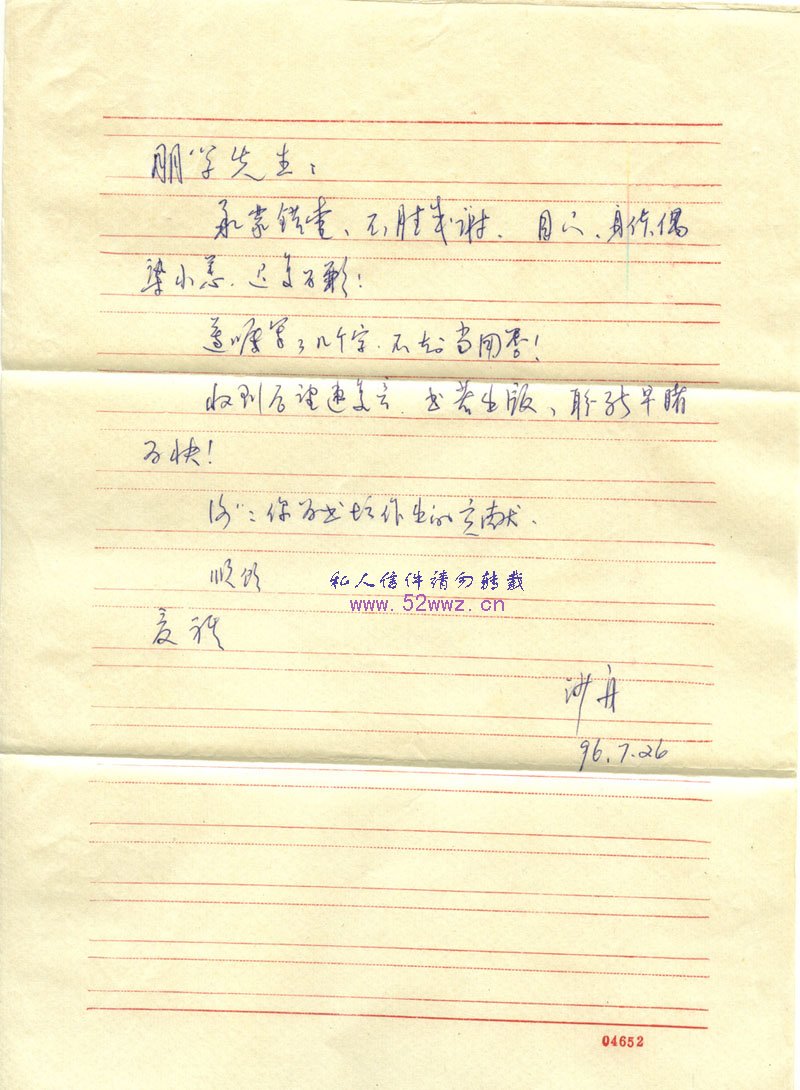 朋学先生：
承蒙错爱、不胜感谢. 目下、身体偶
染小恙. 迟复为歉！
遵嘱写了几个字. 不知当用否！
收到后望速复言. 书若出版、盼能早睹
为快！
谢谢你为书坛作出的贡献.
顺颂
夏祺
私人信件请勿转载
www.52wwz.cn
沙舟
96.7.26
04652